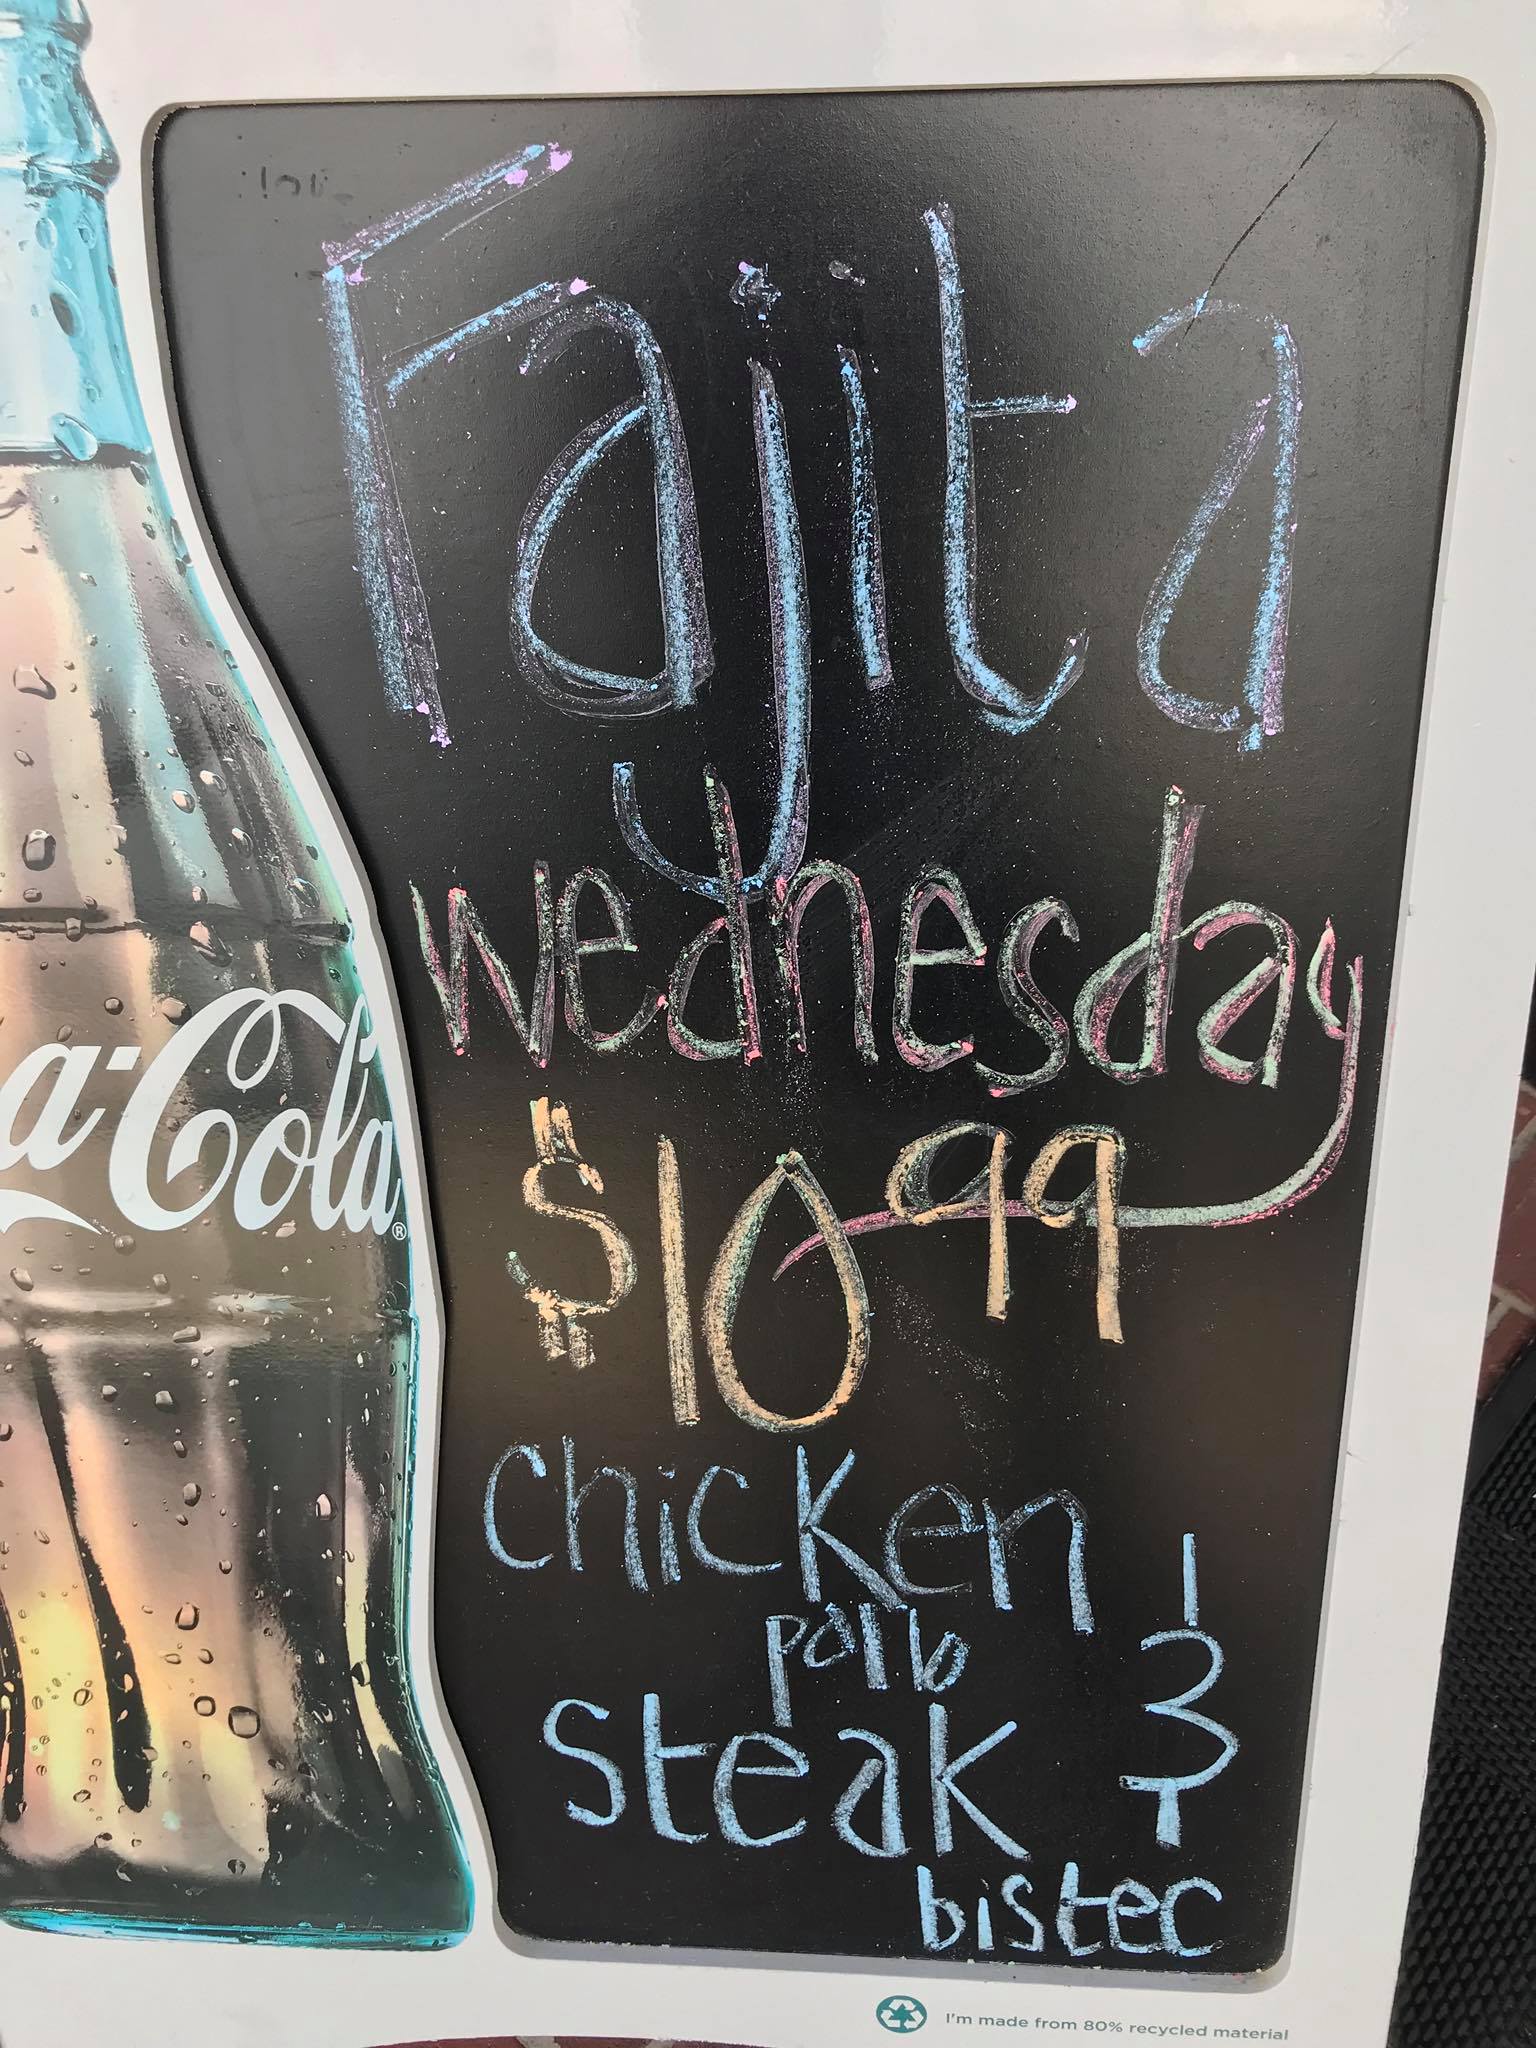 Fajita
Wednesday
$10.99
chicken
pollo
&
steak
bistec
a-Cola®
I'm made from 80% recycled material